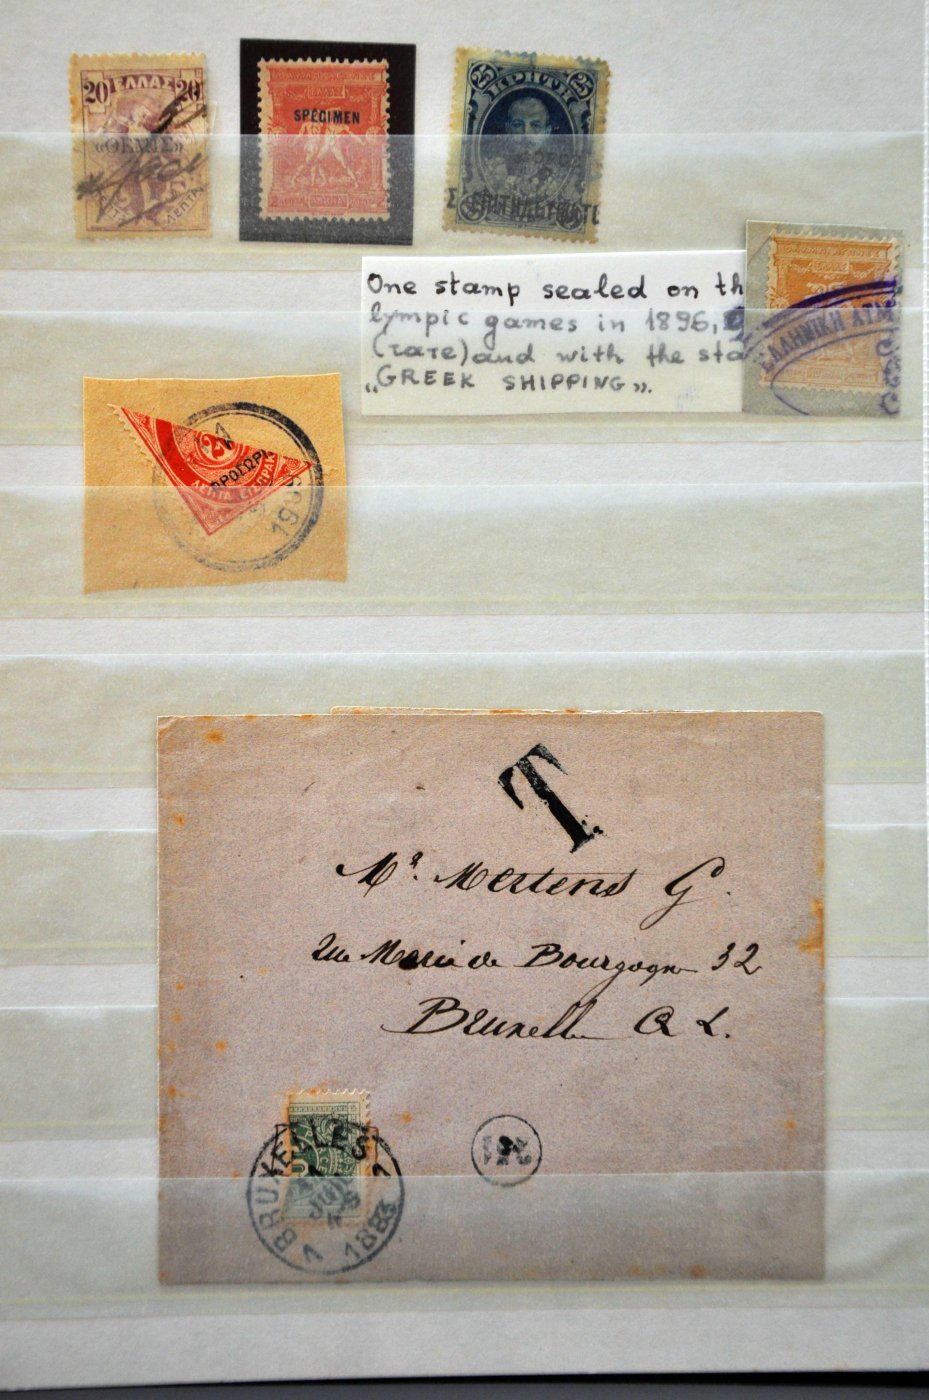 20 ΕΛΛΑΣ 20
«ΘΕΜΙΣ»
ΛΕΠΤΑ
SPECIMEN
25 ΚΡΗΤΗ 25
One stamp sealed on th
lympic games in 1896,
(rare) and with the sta
„GREEK SHIPPING”.
ΕΛΛΗΝΙΚΗ ΑΤΜ
2
ΛΕΠΤΑ ΕΙΣΠΡΑΚ
ΠΡΟΣΩΡΙ
T.
Mr. Mertens G.
rue Marie de Bourgogne 32
Bruxell Q L.
BRUXELLES 1
JUIL
1883
1